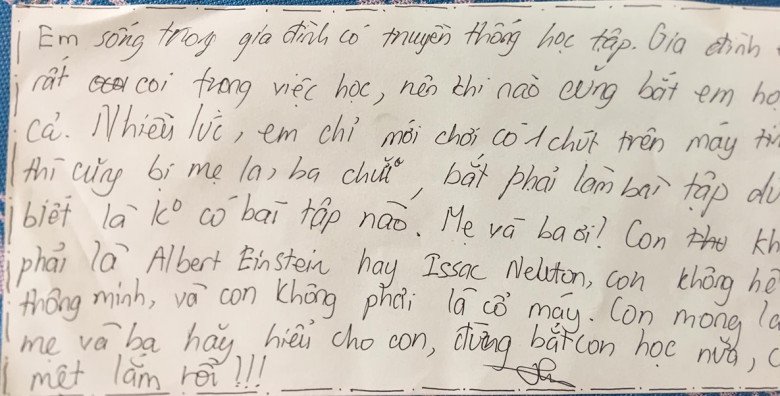 Em sống trong gia đình có truyền thống học tập. Gia đình
rất coi trọng việc học, nên khi nào cũng bắt em họ
cả. Nhiều lúc, em chỉ mới chơi có 1 chút trên máy
thì cũng bị mẹ la, ba chửi, bắt phải làm bài tập dù
biết là k° có bài tập nào. Mẹ và ba ơi! Con kh
phải là Albert Einstein hay Issac Newton, con không hề
thông minh, và con không phải là cỗ máy. Con mong là
mẹ và ba hãy hiểu cho con, đừng bắt con học nữa, c
mệt lắm rồi!!!